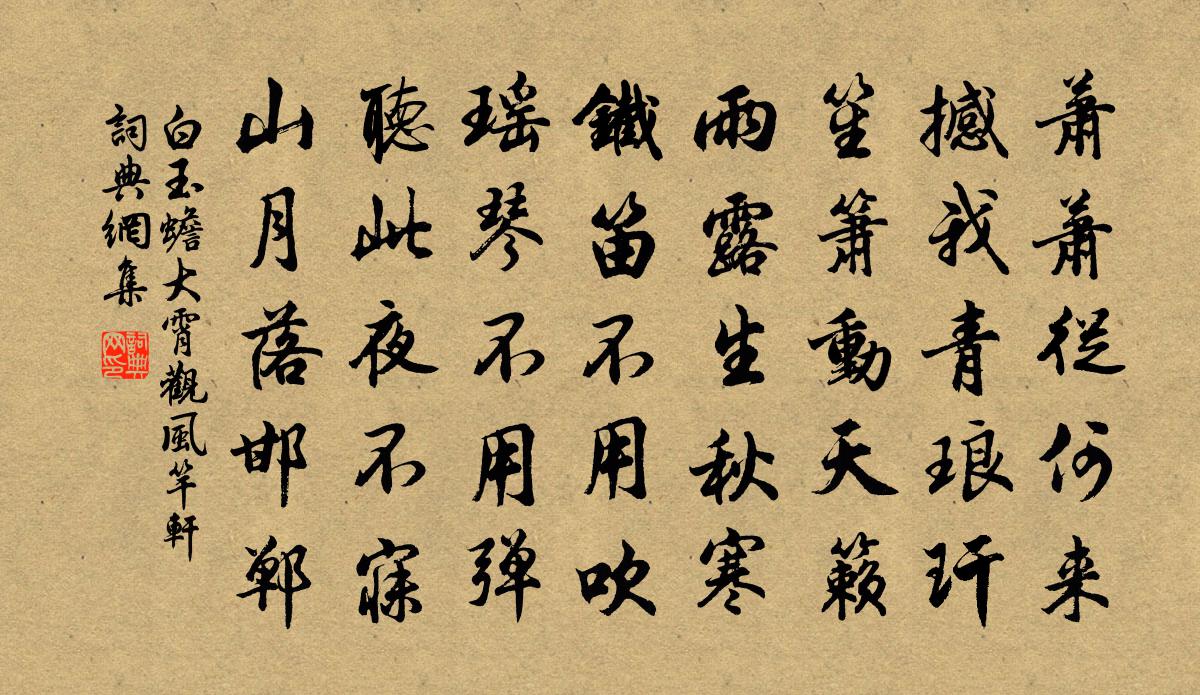 蕭蕭從何来
撼我青琅玕
笙簫動天籟
雨露生秋寒
鐵笛不用吹
瑶琴不用弹
聽此夜不寐
山月落邯鄲
白玉蟾大霄觀風竿軒
詞典網集
詞典网印